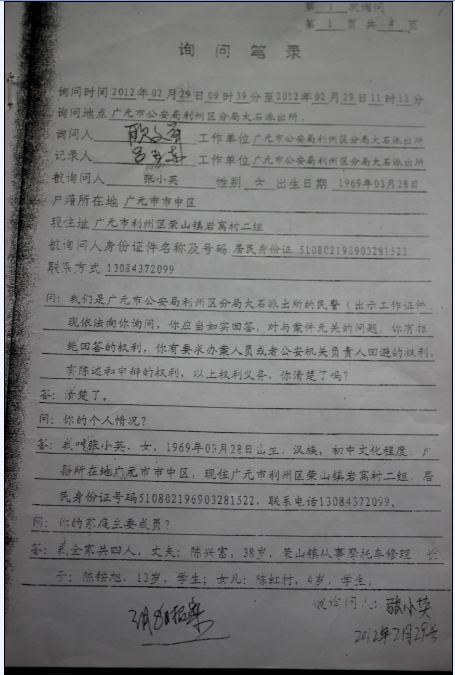 第 1 次询问
第 1 页 共 4 页
询 问 笔 录
询问时间 2012年02月29日09时39分至2012年02月29日11时12分
询问地点 广元市公安局利州区分局大石派出所.
询问人 工作单位 广元市公安局利州区分局大石派出所
记录人 工作单位 广元市公安局利州区分局大石派出所
被询问人 张小英 性别 女 出生日期 1969年03月28日
户籍所在地 广元市市中区
现住址 广元市利州区荣山镇岩窝村二组
被询问人身份证件名称及号码 居民身份证 510802196903281522
联系方式 13084372099
问：我们是广元市公安局利州区分局大石派出所的民警（出示工作证件
现依法向你询问，你应当如实回答，对与案件无关的问题，你有拒
绝回答的权利，你有要求办案人员或者公安机关负责人回避的权利，
有陈述和申辩的权利，以上权利义务，你清楚了吗？
答：清楚了。
问：你的个人情况？
答：我叫张小英，女，1969年03月28日出生，汉族，初中文化程度，户
籍所在地广元市市中区，现住广元市利州区荣山镇岩窝村二组，居
民身份证号码510802196903281522，联系电话13084372099。
问：你的家庭主要成员？
答：我全家共四人，丈夫：陈兴富，38岁，荣山镇从事摩托车修理 长
子：陈桉旭，13岁，学生；女儿：陈虹村，6岁，学生，
被询问人：张小英
2012年2月29号